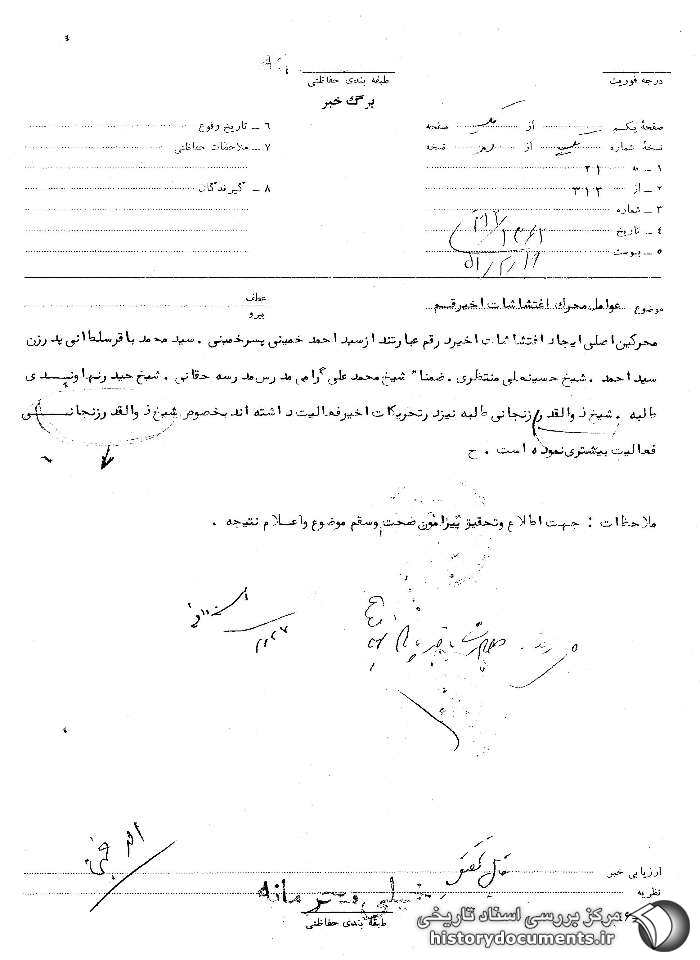 درجه فوریت
طبقه بندی حفاظتی
برگ خبر
صفحه یکم از یک صفحه
نسخه شماره از نسخه
۱ - به ۲۱
۲ - از ۳۱۲
۳ - شماره
۴ - تاریخ
۵ - پیوست
۶ - تاریخ وقوع
۷ - ملاحظات حفاظتی
۸ - گیرندگان
موضوع عوامل محرک اغتشاشات اخیر قم
عطف
پیرو
محرکین اصلی ایجاد اغتشاشات اخیر در قم عبارتند از سید احمد خمینی پسر خمینی . سید محمد باقر سلطانی پدر زن
سید احمد . شیخ حسینعلی منتظری . ضمنا" شیخ محمد علی گرامی مدرس مدرسه حقانی . شیخ حیدر نهاوندی
طلبه . شیخ ذوالقدر زنجانی طلبه نیز در تحریکات اخیر فعالیت داشته اند بخصوص شیخ ذوالقدر زنجانی
فعالیت بیشتری نموده است . ح
ملاحظات : جهت اطلاع وتحقیق پیرامون صحت وسقم موضوع واعلام نتیجه .
ارزیابی خبر
نظریه
خیلی محرمانه
طبقه بندی حفاظتی
مرکز بررسی اسناد تاریخی
historydocuments.ir